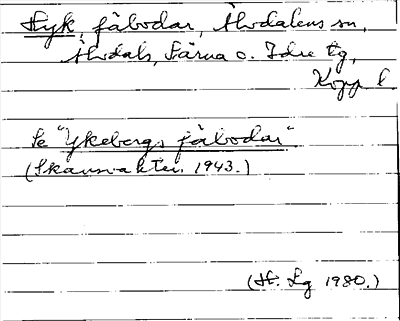 Hyk, fäbodar, Älvdalens sn,
Älvdals, Särna o. Idre tg,
Kopp. l.
Se "Ykebergs fäbodar"
(Skansvakten 1943.)
(H. Lg 1980.)